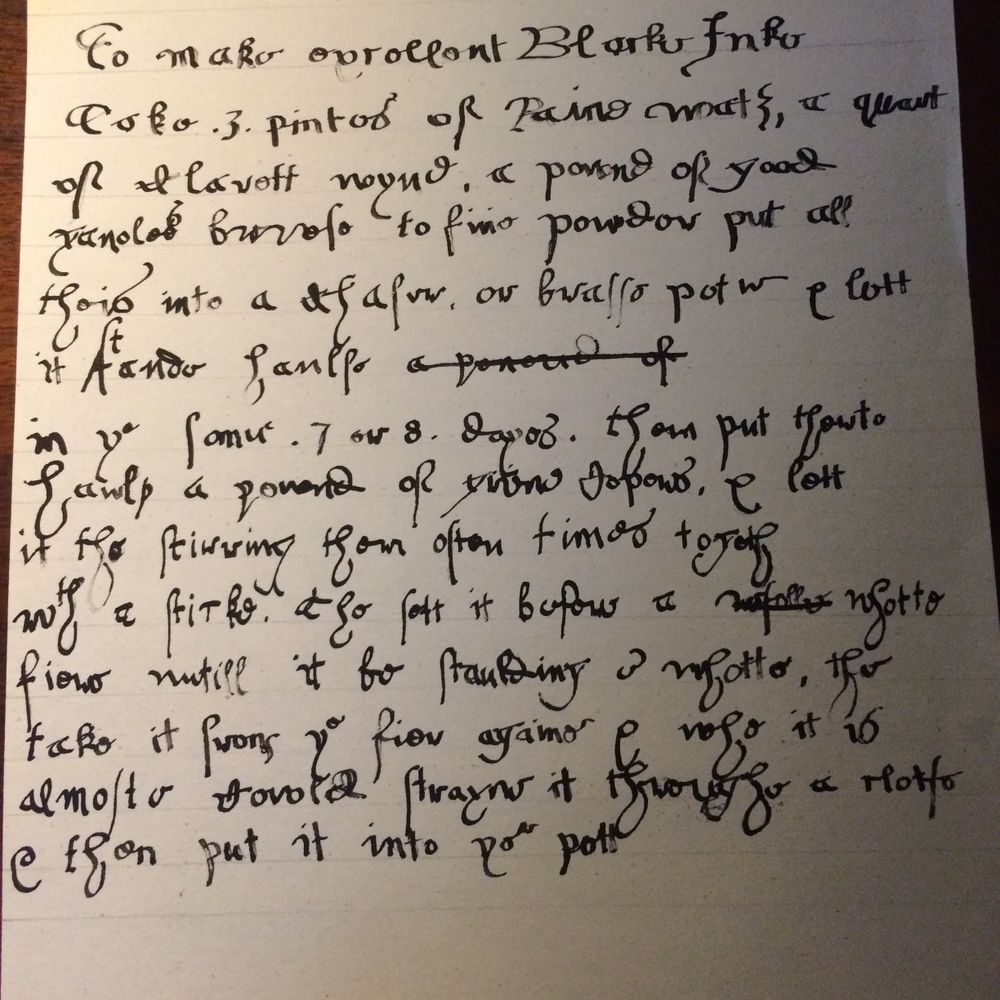 To make excellent Blacke Inke
Take .3. pintes of Raine wat, a quart
of Clarett wyne, a pound of good
galles bruse to fine powder put all
theis into a Chafer, or brasse pott & lett
it stande haulfe a pound of
in ye sonne .7 or 8. dayes. then put therto
haulf a pound of grene Coperus, & lett
it the stirring them often times togeth
wth a sticke. the sett it before a whotte
fiere untill it be skaulding whotte, the
take it from ye fier againe & whe it is
almoste Coold strayne it throughe a clothe
& then put it into yor pott